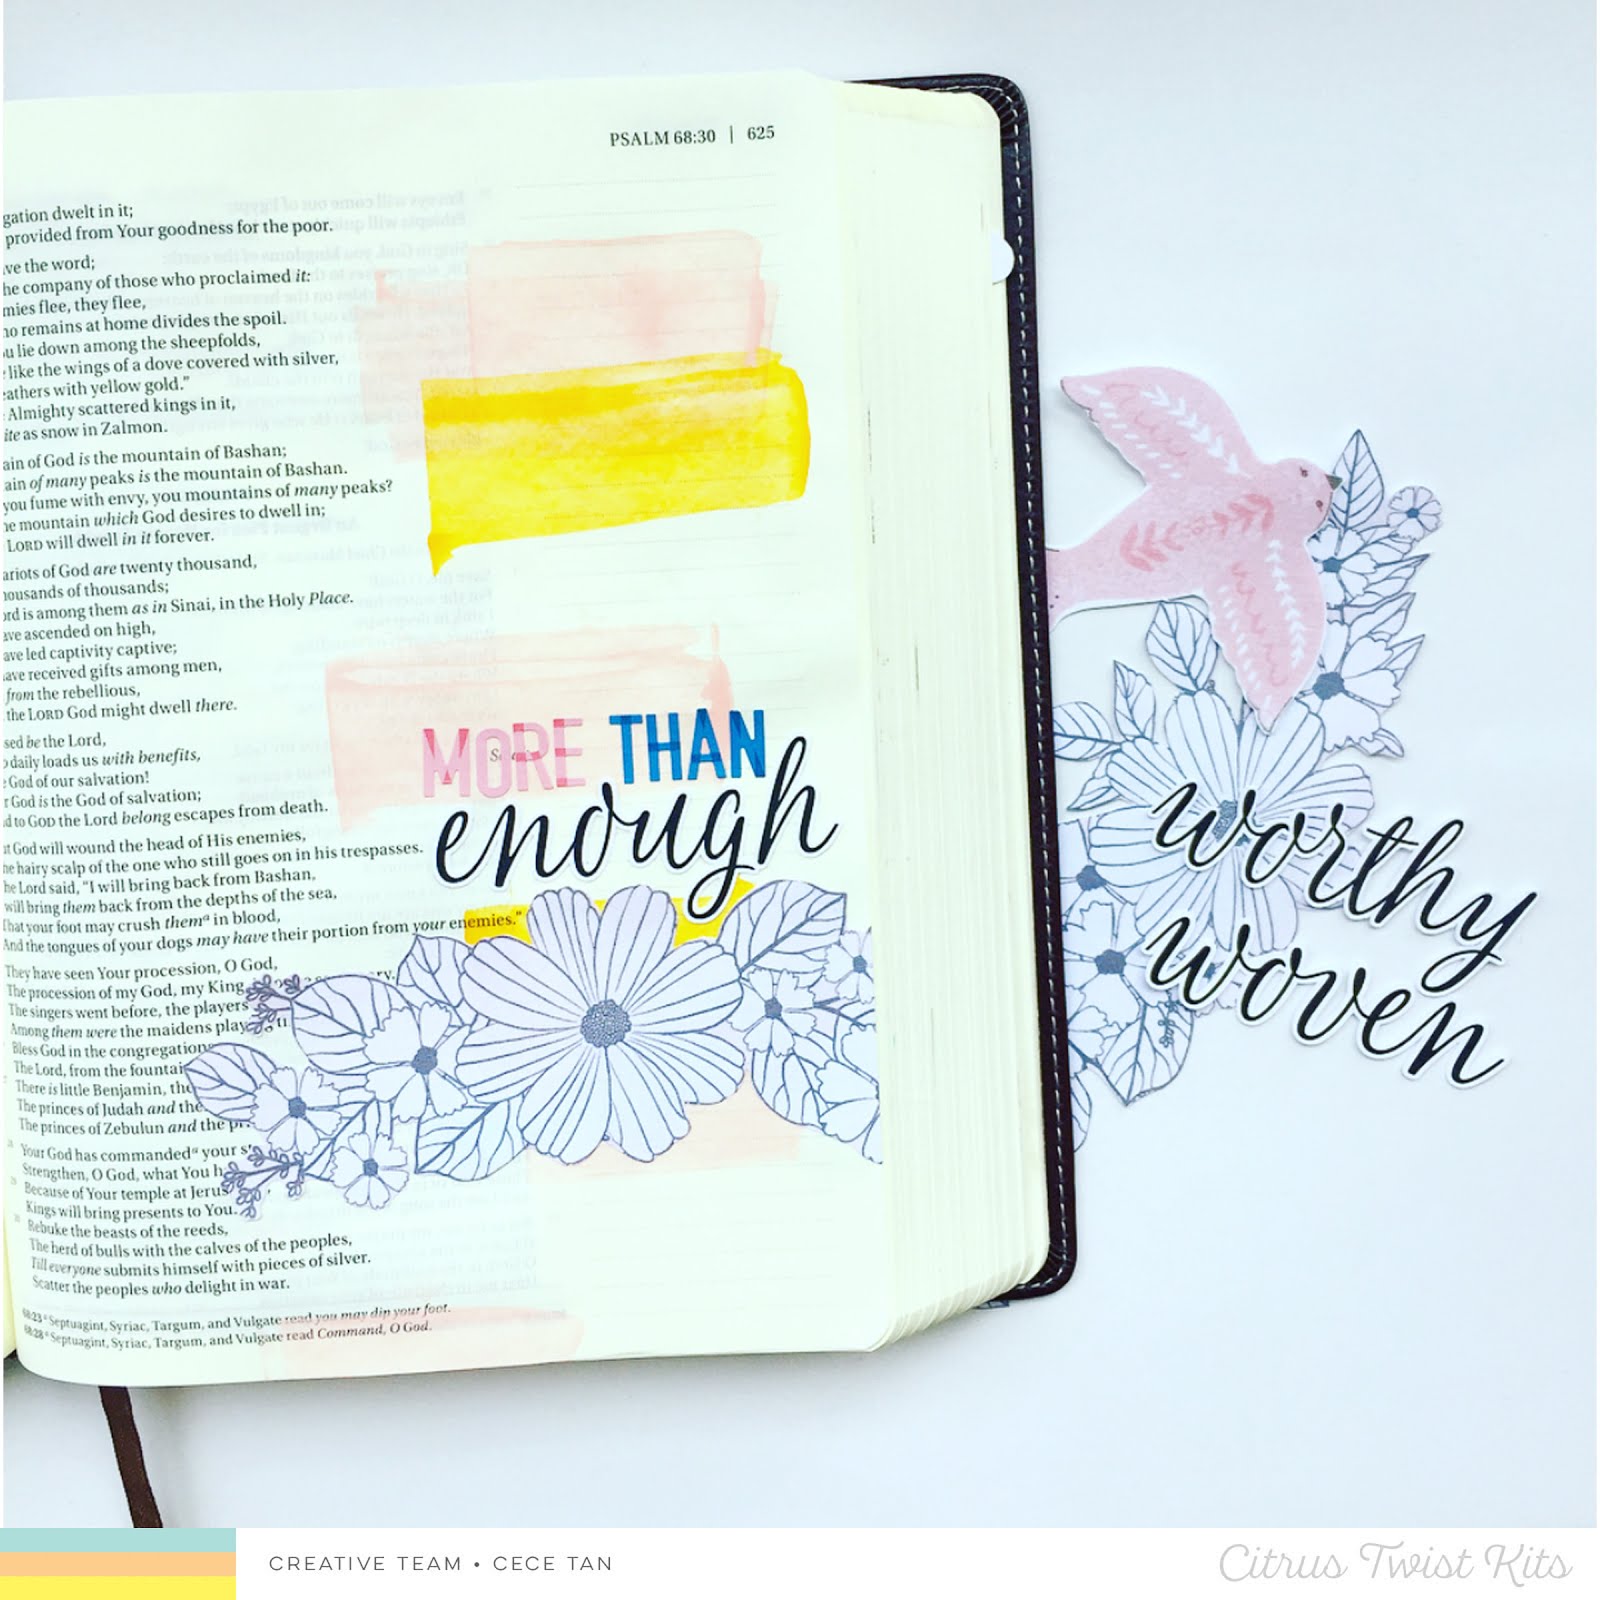 PSALM 68:30 | 625
gation dwelt in it;
provided from Your goodness for the poor.
ve the word;
he company of those who proclaimed it:
mies flee, they flee,
no remains at home divides the spoil.
u lie down among the sheepfolds,
like the wings of a dove covered with silver,
eathers with yellow gold."
Almighty scattered kings in it,
ite as snow in Zalmon.
ain of God is the mountain of Bashan;
ain of many peaks is the mountain of Bashan.
you fume with envy, you mountains of many peaks?
he mountain which God desires to dwell in;
LORD will dwell in it forever.
ariots of God are twenty thousand,
housands of thousands;
ord is among them as in Sinai, in the Holy Place.
ave ascended on high,
ave led captivity captive;
ave received gifts among men,
from the rebellious,
the LORD God might dwell there.
sed be the Lord,
daily loads us with benefits,
God of our salvation!
r God is the God of salvation;
d to GOD the Lord belong escapes from death.
t God will wound the head of His enemies,
he hairy scalp of the one who still goes on in his trespasses.
he Lord said, "I will bring back from Bashan,
will bring them back from the depths of the sea,
That your foot may crush themᵃ in blood,
And the tongues of your dogs may have their portion from your enemies."
They have seen Your procession, O God,
The procession of my God, my King,
The singers went before, the players
Among them were the maidens play
Bless God in the congregations
The Lord, from the fountai
There is little Benjamin, the
The princes of Judah and the
The princes of Zebulun and the pr
Your God has commandedᵃ your s
Strengthen, O God, what You h
Because of Your temple at Jerus
Kings will bring presents to You.
Rebuke the beasts of the reeds,
The herd of bulls with the calves of the peoples,
Till everyone submits himself with pieces of silver.
Scatter the peoples who delight in war.
68:23 ᵃ Septuagint, Syriac, Targum, and Vulgate read you may dip your foot.
68:28 ᵃ Septuagint, Syriac, Targum, and Vulgate read Command, O God.
MORE THAN
enough
worthy
woven
CREATIVE TEAM • CECE TAN
Citrus Twist Kits